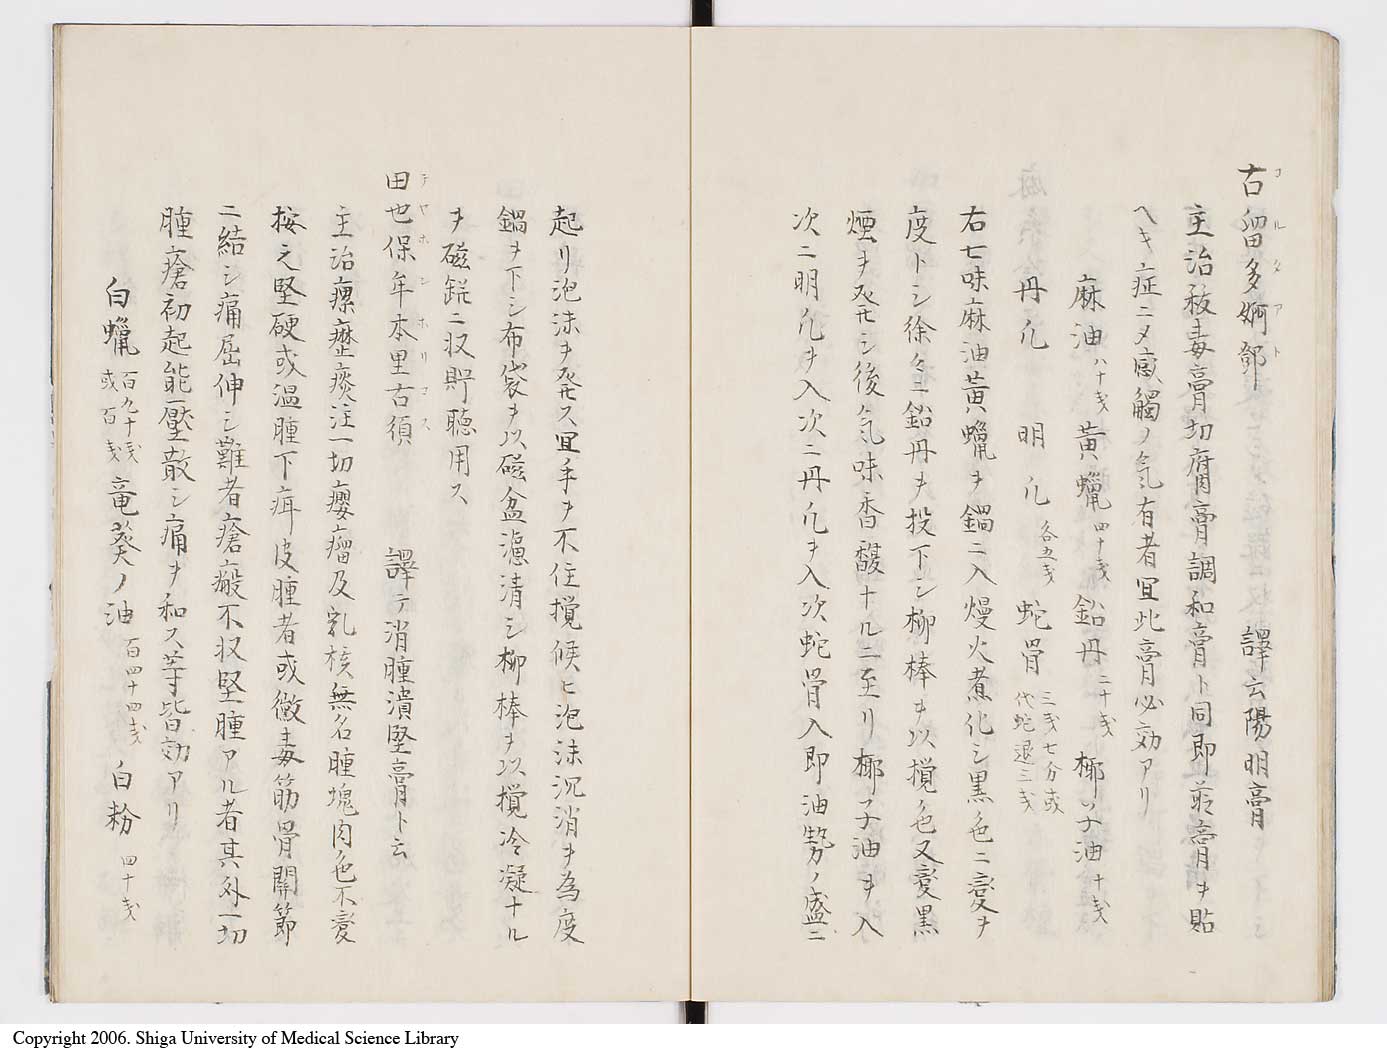 古留多婀郤 譯云陽明膏
コルタアト
主治救毒膏切腐膏調和膏ト同即前膏ヲ貼
ヘキ症ニメ感觸ノ氣有者宜此膏必効アリ
麻油八十戔 黄蠟四十戔 鉛丹二十戔 椰子油十戔
丹凢 明凢各五戔 蛇骨三戔七分或代蛇退三戔
右七味麻油黄蠟ヲ鍋ニ入熳火煮化シ黒色ニ変ヲ
度トシ徐々ニ鉛丹ヲ投下シ柳棒ヲ以攪色又変黒
煙ヲ発シ後氣味香馥ナルニ至リ椰子油ヲ入
次ニ明凢ヲ入次ニ丹凢ヲ入次蛇骨入即油勢ノ盛ニ
起リ泡沫ヲ発ス宜手ヲ不住攪候ヒ泡沫沉消ヲ為度
鍋ヲ下シ布袋ヲ以磁盆濾清シ柳棒ヲ以攪冷凝ナル
ヲ磁鋺ニ収貯聴用ス
田也保牟本里古須 譯テ消腫潰堅膏ト云
テヤホンホリコス
主治瘰癧痰注一切癭瘤及乳核無名腫塊肉色不変
按之堅硬或温腫下疳皮腫者或黴毒筋骨關節
ニ結シ痛屈伸シ難者瘡瘢不収堅腫アル者其外一切
腫瘡初起能壓散シ痛ヲ和ス等皆効アリ
白蠟百九十戔或百戔 竜葵ノ油百四十四戔 白粉四十戔
Copyright 2006. Shiga University of Medical Science Library